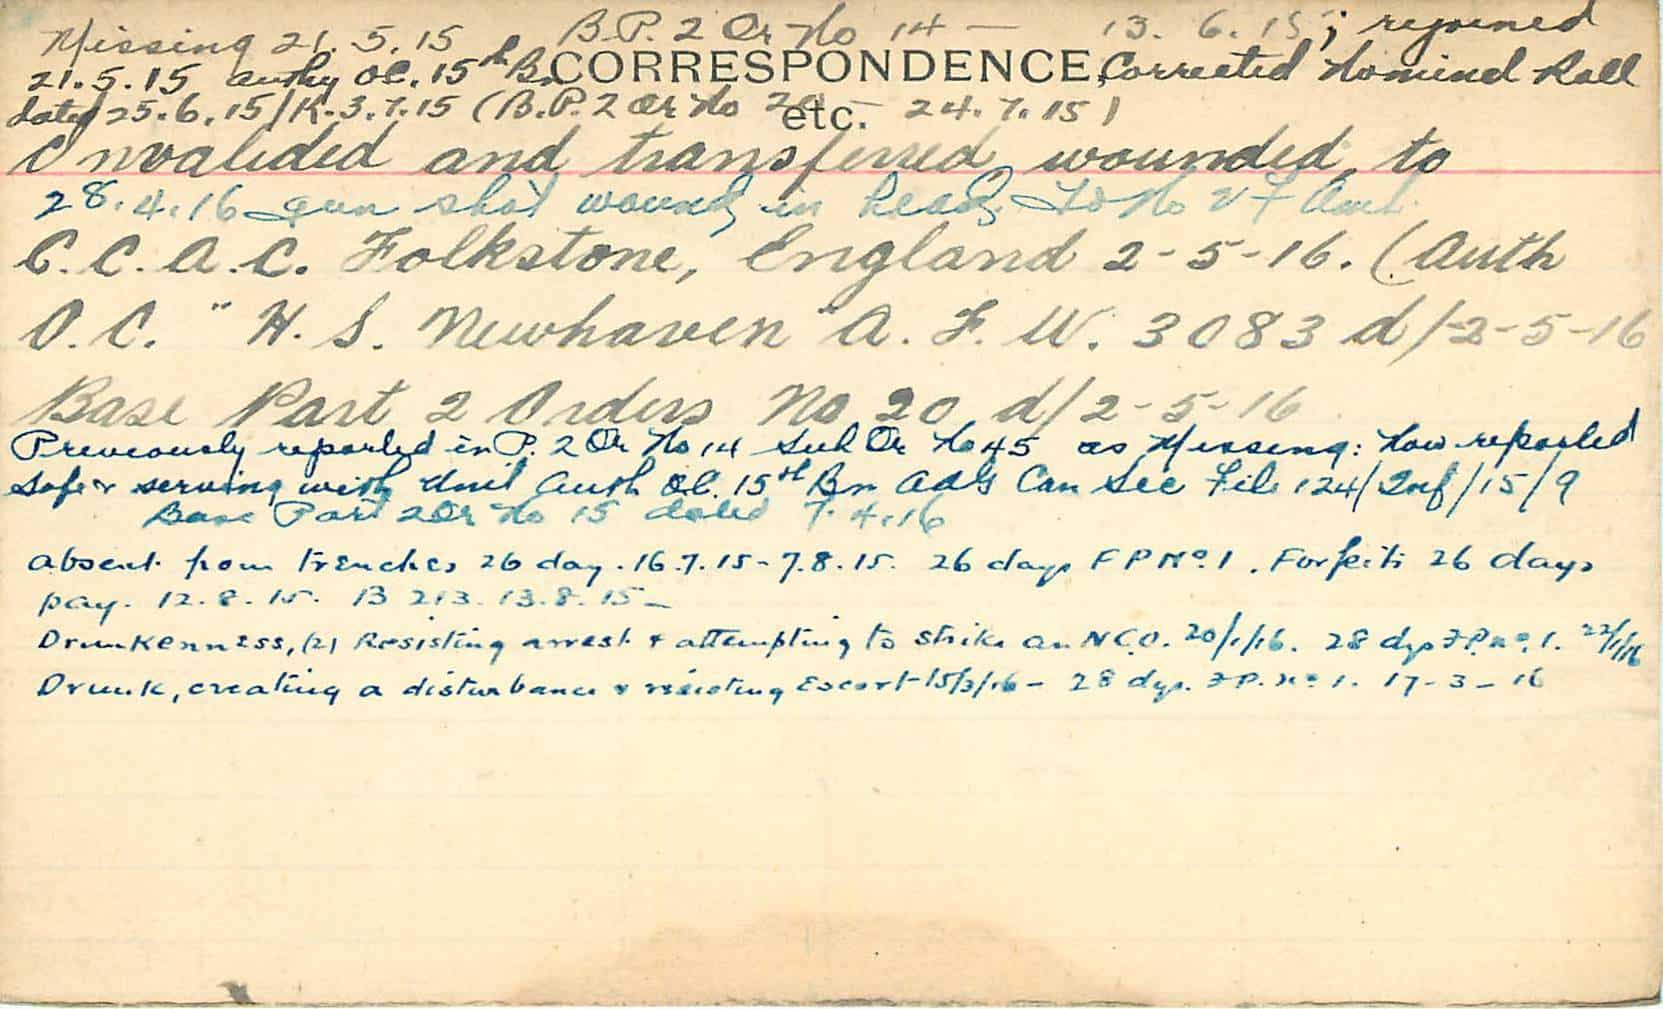 Missing 21.5.15 B.P. 2 Or No 14 — 13.6.15; rejoined
CORRESPONDENCE,
21.5.15 authy OC. 15th Bn Corrected Nominal Roll
etc.
dated 25.6.15/K-3.7.15 (B.P. 2 Or No 20 — 24.7.15)
Invalided and transferred, wounded, to
28.4.16 gun shot wound, in head, To No 2 F Amb.
C.C.A.C. Folkstone, England 2-5-16. (Auth
O.C. "H.S. Newhaven" A.F.W. 3083 d/-2-5-16
Base Part 2 Orders No 20 d/2-5-16
Previously reported in P. 2 Or No 14 Sub Or No 45 as Missing: Now reported
safe & serving with Unit Auth OC. 15th Bn AAG Can Sec File 124/Inf/15/9
Base Part 2 Or No 15 dated 7.4.16
Absent from trenches 26 day. 16.7.15-7.8.15. 26 days F P No. 1. Forfeits 26 days
pay. 12.8.15. B 213. 13.8.15 —
Drunkenness, (2) Resisting arrest & attempting to strike an N.C.O. 20/1/16. 28 dys F.P. no. 1. 22/1/16
Drunk, creating a disturbance & resisting Escort 15/3/16 - 28 dys. F.P. No 1. 17-3-16